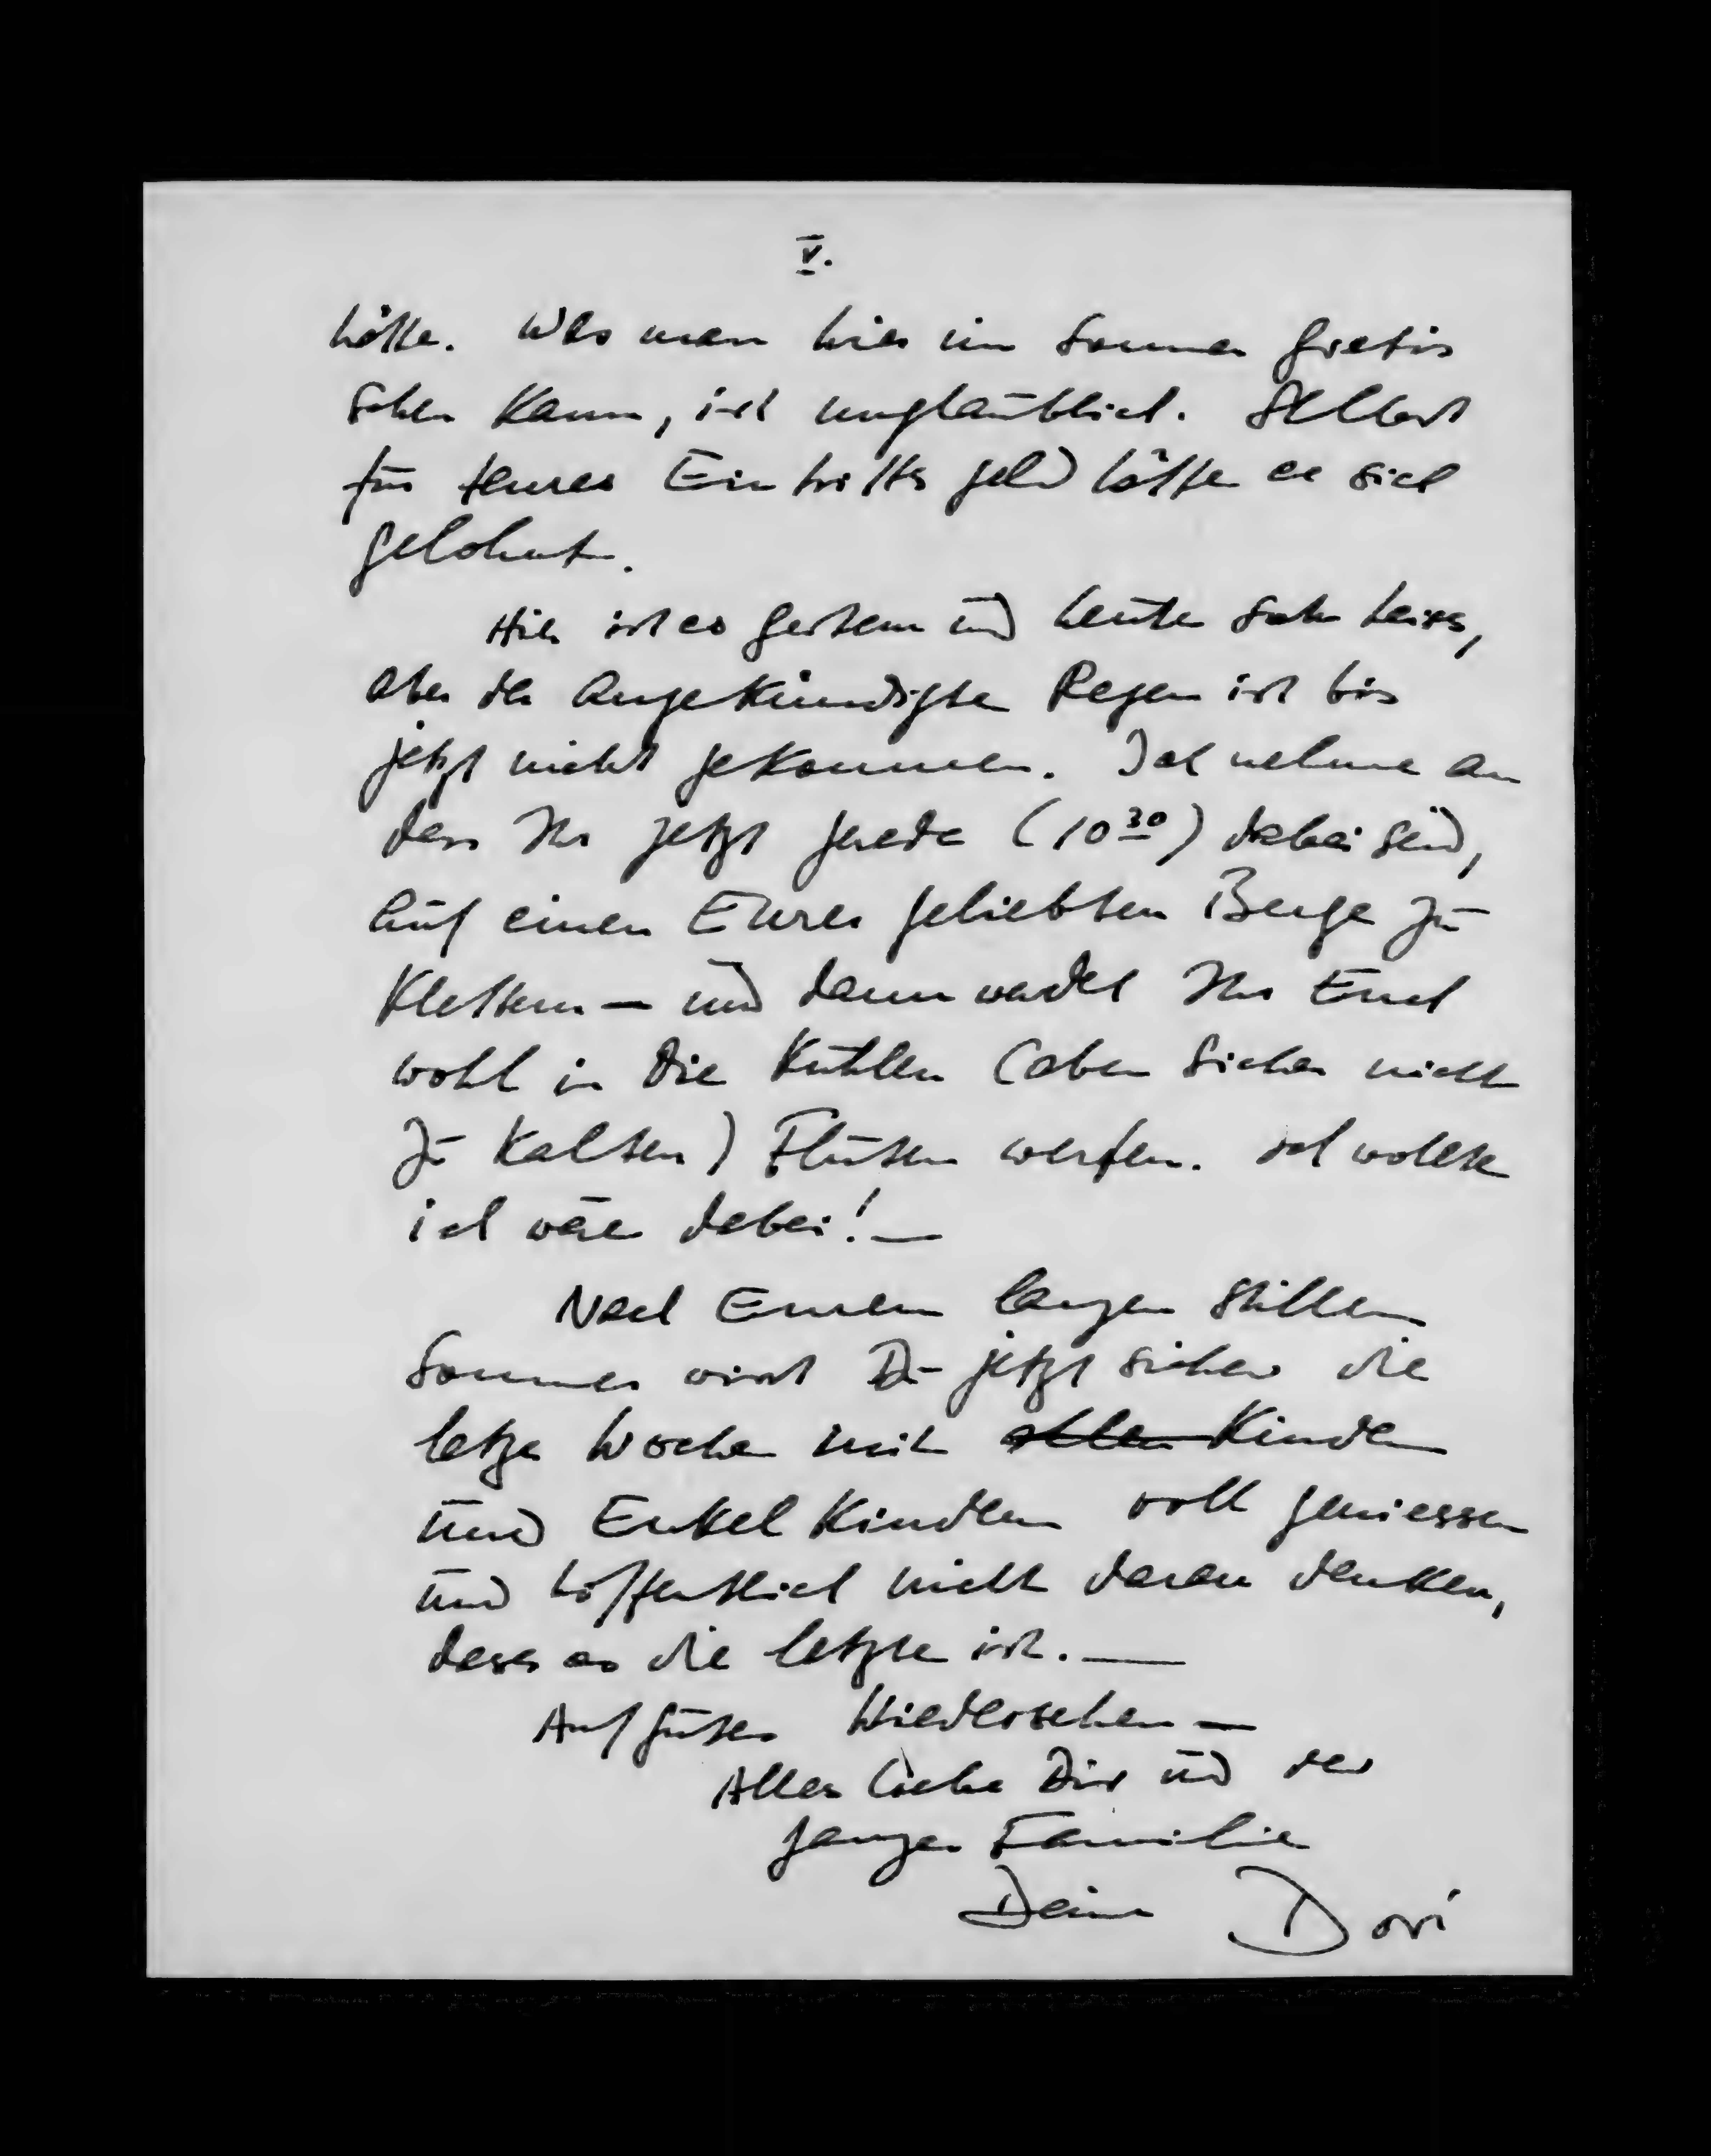 V.
hätte. Was man hier im Sommer gratis
sehen kann, ist unglaublich. Selbst
für teures Eintrittsgeld hätte es sich
gelohnt.
Hier ist es gestern und heute sehr heiss,
aber der angekündigte Regen ist bis
jetzt nicht gekommen. Ich nehme an
dass Ihr jetzt gerade (10³⁰) dabei seid,
auf einen Eurer geliebten Berge zu
klettern — und dann werdet Ihr Euch
wohl in die kühlen (aber sicher nicht
zu kalten) Fluten werfen. Ich wollte
ich wäre dabei! —
Nach Eurem langen stillen
Sommer wirst Du jetzt sicher die
letze Woche mit allen Kindern
und Enkelkindern voll geniessen
und hoffentlich nicht daran denken,
dass es die letzte ist. —
Auf gutes Wiedersehen —
Alles Liebe Dir und der
ganzen Familie
Deine Dori